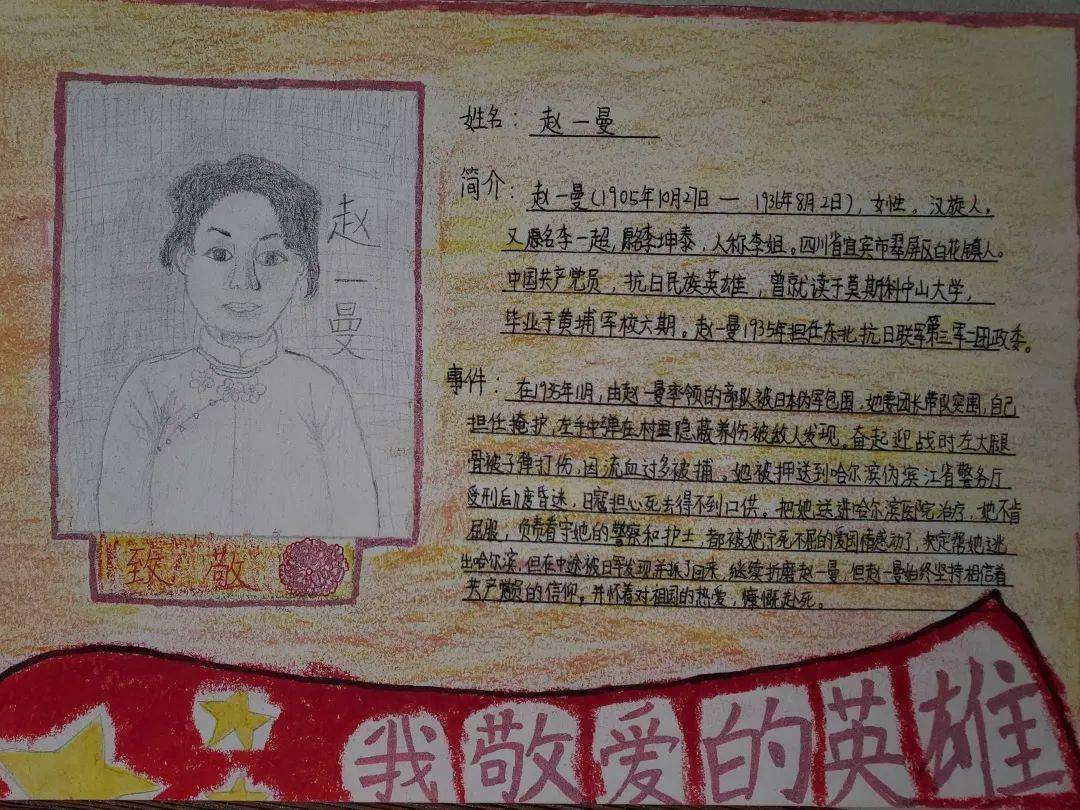 赵一曼
致敬
姓名：赵一曼
简介：赵一曼(1905年10月27日—1936年8月2日)，女性。汉族人，
又原名李一超，原名李坤泰，人称李姐。四川省宜宾市翠屏区白花镇人。
中国共产党员，抗日民族英雄，曾就读于莫斯科中山大学，
毕业于黄埔军校六期。赵一曼1935年担任东北抗日联军第三军二团政委。
事件：在1935年11月，由赵一曼率领的部队被日本伪军包围，她要团长带队突围，自己
担任掩护，左手中弹在村里隐蔽养伤被敌人发现，奋起迎战时左大腿
骨被子弹打伤，因流血过多被捕。她被押送到哈尔滨伪滨江省警务厅
受刑后几度昏迷，日寇担心死去得不到口供。把她送进哈尔滨医院治疗，她不肯
屈服，负责看守她的警察和护士，都被她宁死不屈的爱国情感动了，决定帮她逃
出哈尔滨，但在中途被日军发现并抓了回来，继续折磨赵一曼，但赵一曼始终坚持相信着
共产党员的信仰。并怀着对祖国的热爱，慷慨赴死。
我敬爱的英雄